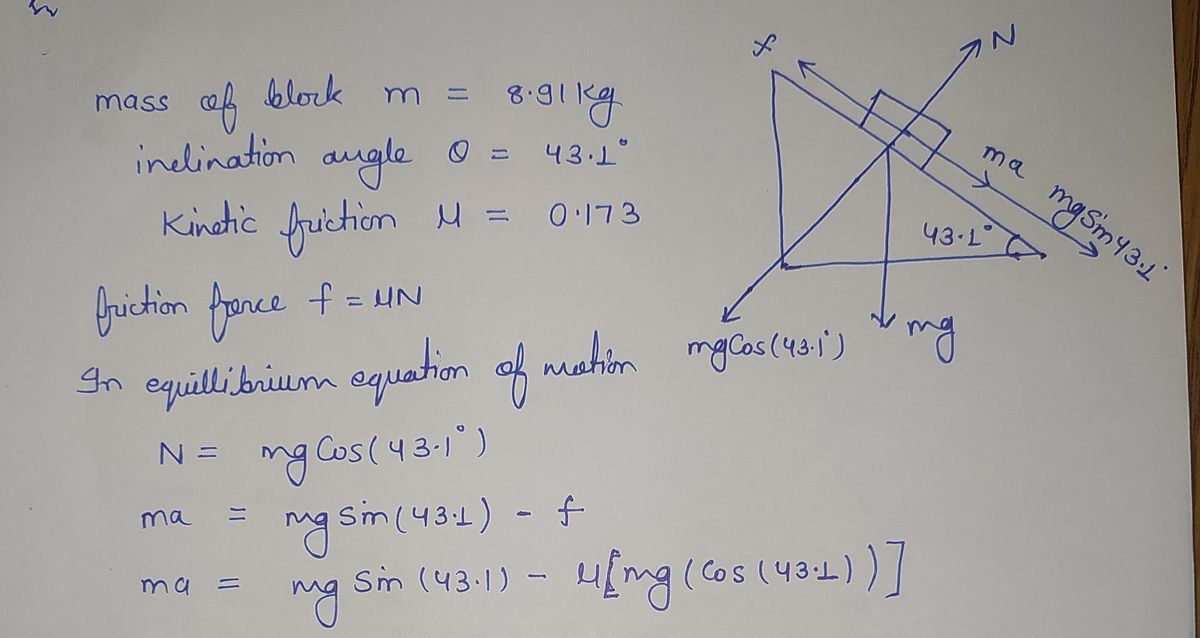 mass of block m = 8.91 kg
inclination angle θ = 43.1°
Kinetic friction μ = 0.173
friction force f = μN
In equillibrium equation of motion
N = mg Cos(43.1°)
ma = mg Sin(43.1) - f
ma = mg Sin (43.1) - μ[mg (Cos (43.1))]
f
N
ma
mg Sin 43.1°
43.1°
mg Cos(43.1°)
mg